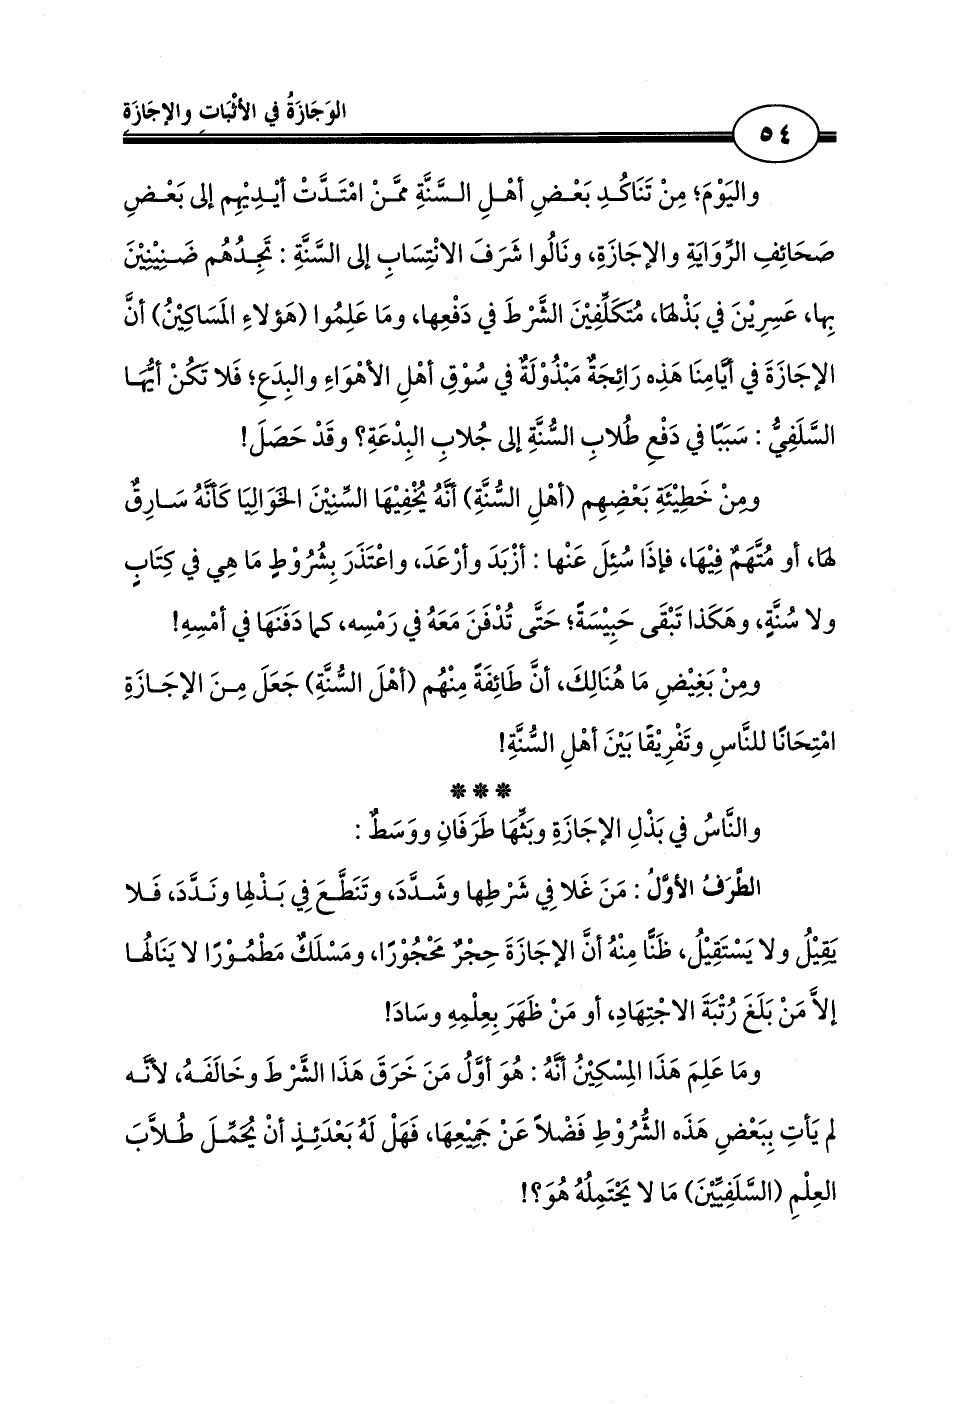 الوَجَازَةُ في الأثْبَاتِ والإجَازَةِ
٥٤
واليَوْمَ؛ مِنْ تَنَاكُدِ بَعْضِ أهْلِ السَّنَّةِ ممَّنْ امْتَدَّتْ أيْدِيْهِم إلى بَعْضِ
صَحَائِفِ الرِّوَايَةِ والإجَازَةِ، ونَالُوا شَرَفَ الانْتِسَابِ إلى السَّنَّةِ : تَجِدُهُم ضَنِيْنِيْنَ
بِها، عَسِرِيْنَ في بَذْلهَا، مُتَكَلِّفِيْنَ الشَّرْطَ في دَفْعِها، ومَا عَلِمُوا (هَؤلاءِ المَسَاكِيْنُ) أنَّ
الإجَازَةَ في أيَّامِنَا هَذِه رَائِجَةٌ مَبْذُوْلَةٌ في سُوْقِ أهْلِ الأهْوَاءِ والبِدَعِ؛ فَلا تَكُنْ أيُّهَا
السَّلَفِيُّ : سَبَبًا في دَفْعِ طُلابِ السُّنَّةِ إلى جُلابِ البِدْعَةِ؟ وقَدْ حَصَلَ!
ومِنْ خَطِيْئَةِ بَعْضِهِم (أهْلِ السُّنَّةِ) أنَّهُ يُخْفِيْهَا السِّنِيْنَ الخَوَالِيَا كَأنَّهُ سَارِقٌ
لهَا، أو مُتَّهَمٌ فِيْهَا، فإذَا سُئِلَ عَنْها : أزْبَدَ وأرْعَدَ، واعْتَذَرَ بِشُرُوْطٍ مَا هِي في كِتَابٍ
ولا سُنَّةٍ، وهَكَذا تَبْقَى حَبِيْسَةً؛ حَتَّى تُدْفَنَ مَعَهُ في رَمْسِه، كما دَفَنَهَا في أمْسِهِ!
ومِنْ بَغِيْضِ مَا هُنَالِكَ، أنَّ طَائِفَةً مِنْهُم (أهْلَ السُّنَّةِ) جَعَلَ مِنَ الإجَازَةِ
امْتِحَانًا للنَّاسِ وتَفْرِيْقًا بَيْنَ أهْلِ السُّنَّةِ!
***
والنَّاسُ في بَذْلِ الإجَازَةِ وبَثِّهَا طَرَفَانِ ووَسَطٌ :
الطَّرَفُ الأوَّلُ : مَنَ غَلا في شَرْطِها وشَدَّدَ، وتَنَطَّعَ في بَذْلِها ونَدَّدَ، فَلا
يَقِيْلُ ولا يَسْتَقِيْلُ، ظَنًّا مِنْهُ أنَّ الإجَازَةَ حِجْرٌ مَحْجُوْرًا، ومَسْلَكٌ مَطْمُوْرًا لا يَنَالُهَا
إلاَّ مَنْ بَلَغَ رُتْبَةَ الاجْتِهَادِ، أو مَنْ ظَهَرَ بِعِلْمِهِ وسَادَ!
ومَا عَلِمَ هَذَا المِسْكِيْنُ أنَّهُ : هُوَ أوَّلُ مَنْ خَرَقَ هَذَا الشَّرْطَ وخَالَفَهُ، لأنَّه
لم يَأتِ بِبَعْضِ هَذِه الشُّرُوْطِ فَضْلاً عَنْ جَمِيْعِهَا، فَهَلْ لَهُ بَعْدَئِذٍ أنْ يُحَمِّلَ طُلاَّبَ
العِلْمِ (السَّلَفِيِّيْنَ) مَا لا يَحْتَمِلُهُ هُوَ؟!